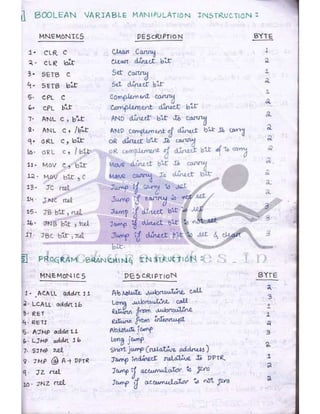 BOOLEAN VARIABLE MANIPULATION INSTRUCTION :
MNEMONICS DESCRIPTION BYTE
1. CLR C Clean Carry 1
2. CLR bit Clear direct bit 2
3. SETB C Set carry 1
4. SETB bit Set direct bit 2
5. CPL C Complement carry 1
6. CPL bit Complement direct bit 2
7. ANL C, bit AND direct bit to carry 2
8. ANL C, /bit AND complement of direct bit to carry 2
9. ORL C, bit OR direct bit to carry 2
10. ORL C, /bit OR complement of direct bit to carry 2
11. MOV C, bit Move direct bit to carry 2
12. MOV bit, C Move carry to direct bit 2
13. JC rel Jump if carry is set 2
14. JNC rel Jump if carry is not set 2
15. JB bit, rel Jump if direct bit is set 3
16. JNB bit, rel Jump if direct bit is not set 3
17. JBC bit, rel Jump if direct bit is set & clear 3
bit.
PROGRAM BRANCHING INSTRUCTION
MNEMONICS DESCRIPTION BYTE
1. ACALL addr 11 Absolute subroutine call 2
2. LCALL addr 16 Long subroutine call 3
3. RET Return from subroutine 1
4. RETI Return from interrupt 1
5. AJMP addr 11 Absolute Jump 2
6. LJMP addr 16 Long jump 3
7. SJMP rel Short jump (relative address) 2
8. JMP @ A + DPTR Jump indirect relative to DPTR 1
9. JZ rel Jump if accumulator is zero 2
10. JNZ rel Jump if accumulator is not zero 2